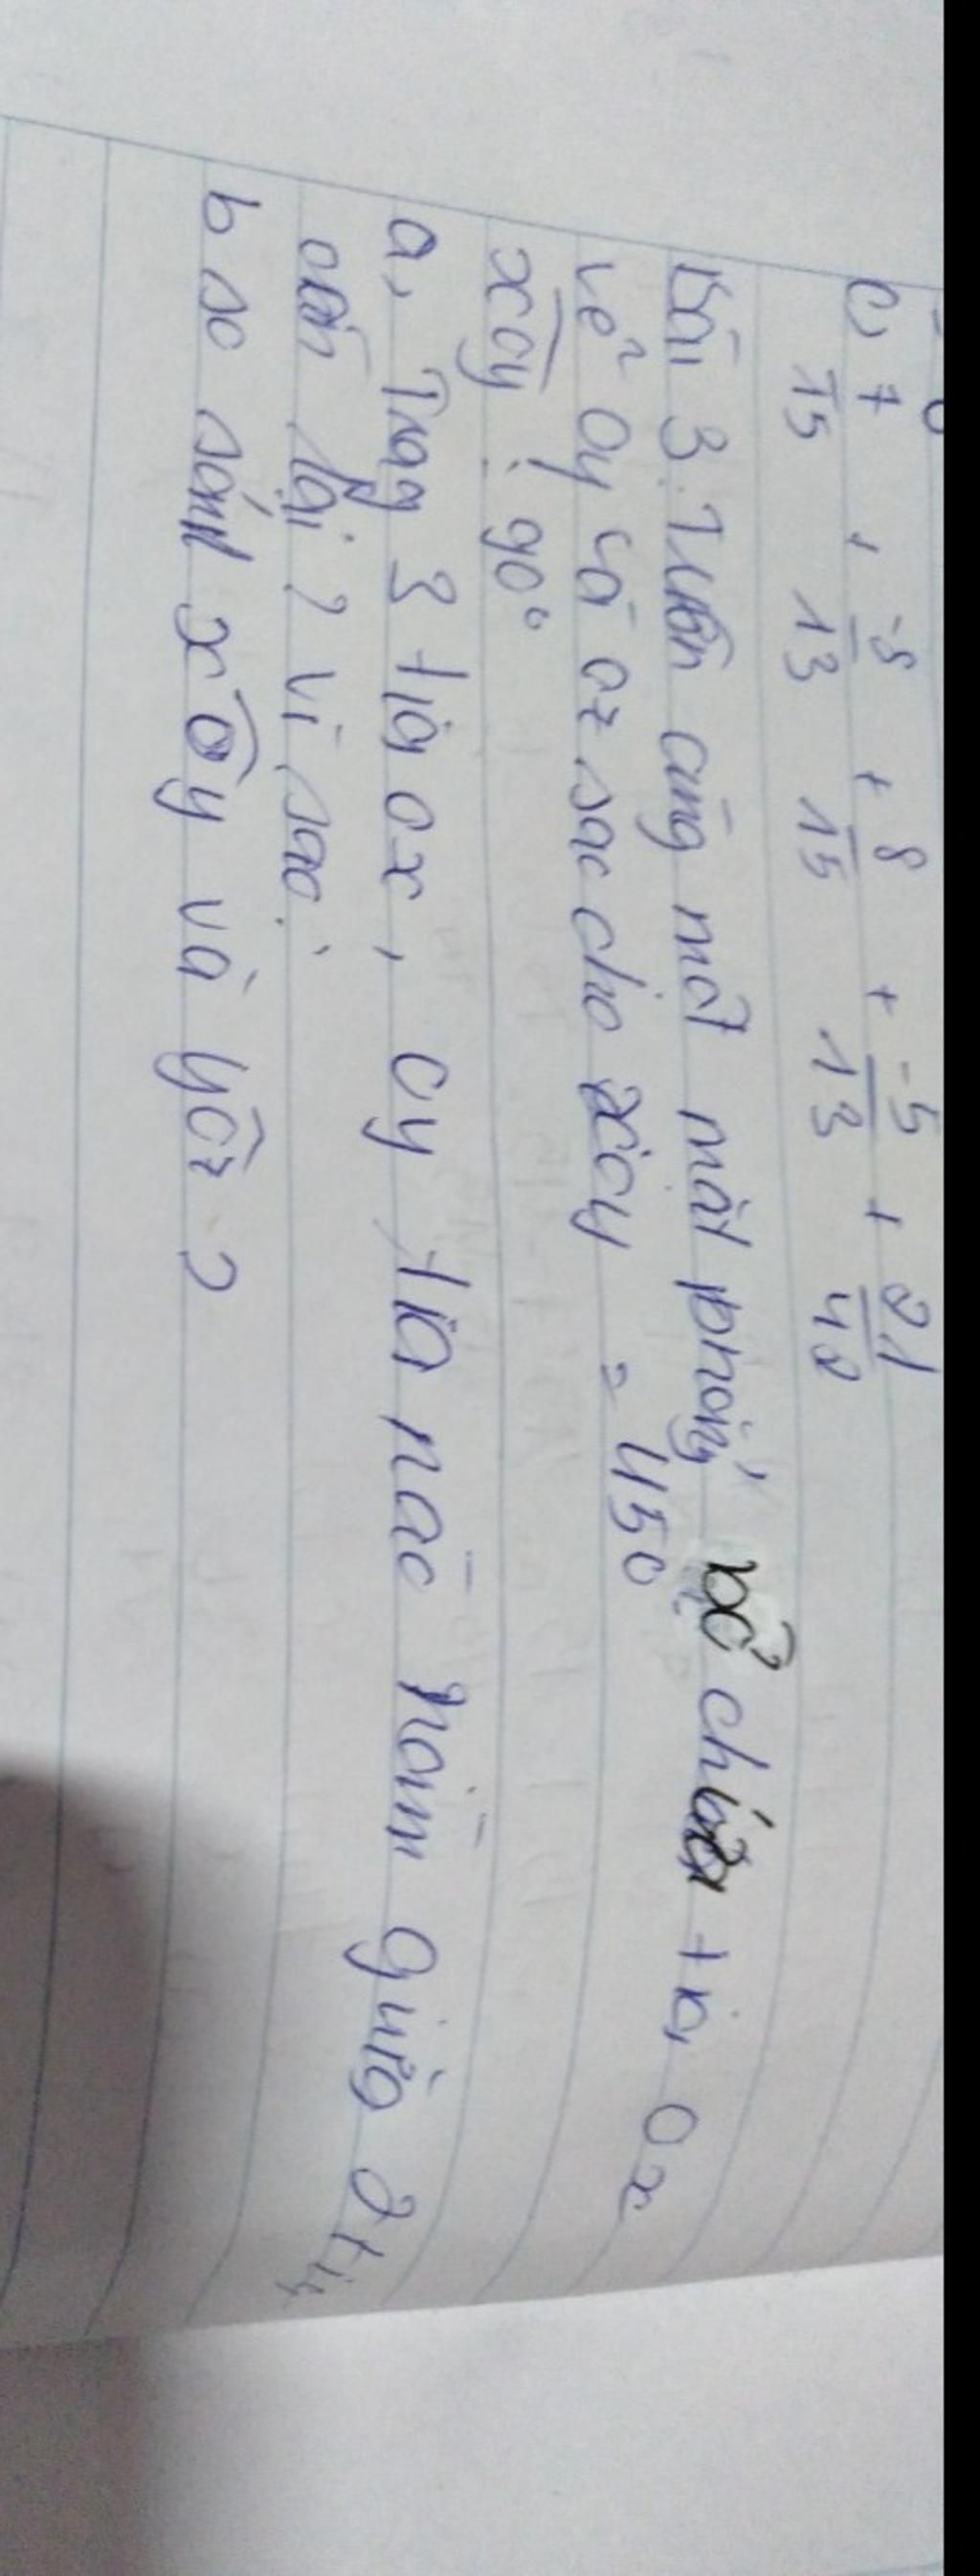 c, 7/15 + -8/13 + 8/15 + -5/13 + 21/48
Bài 3: Trên cùng một mặt phẳng bờ chứa tia Ox
vẽ Oy và oz sao cho xoy = 45°
xoy: 90°
a, Trong 3 tia ox, oy tia nào nằm giữa 2 tia
còn lại? vì sao.
b so sánh xôy và yôz?